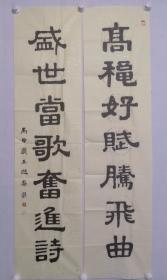 高穐好賦騰飛曲
盛世當歌奮進詩